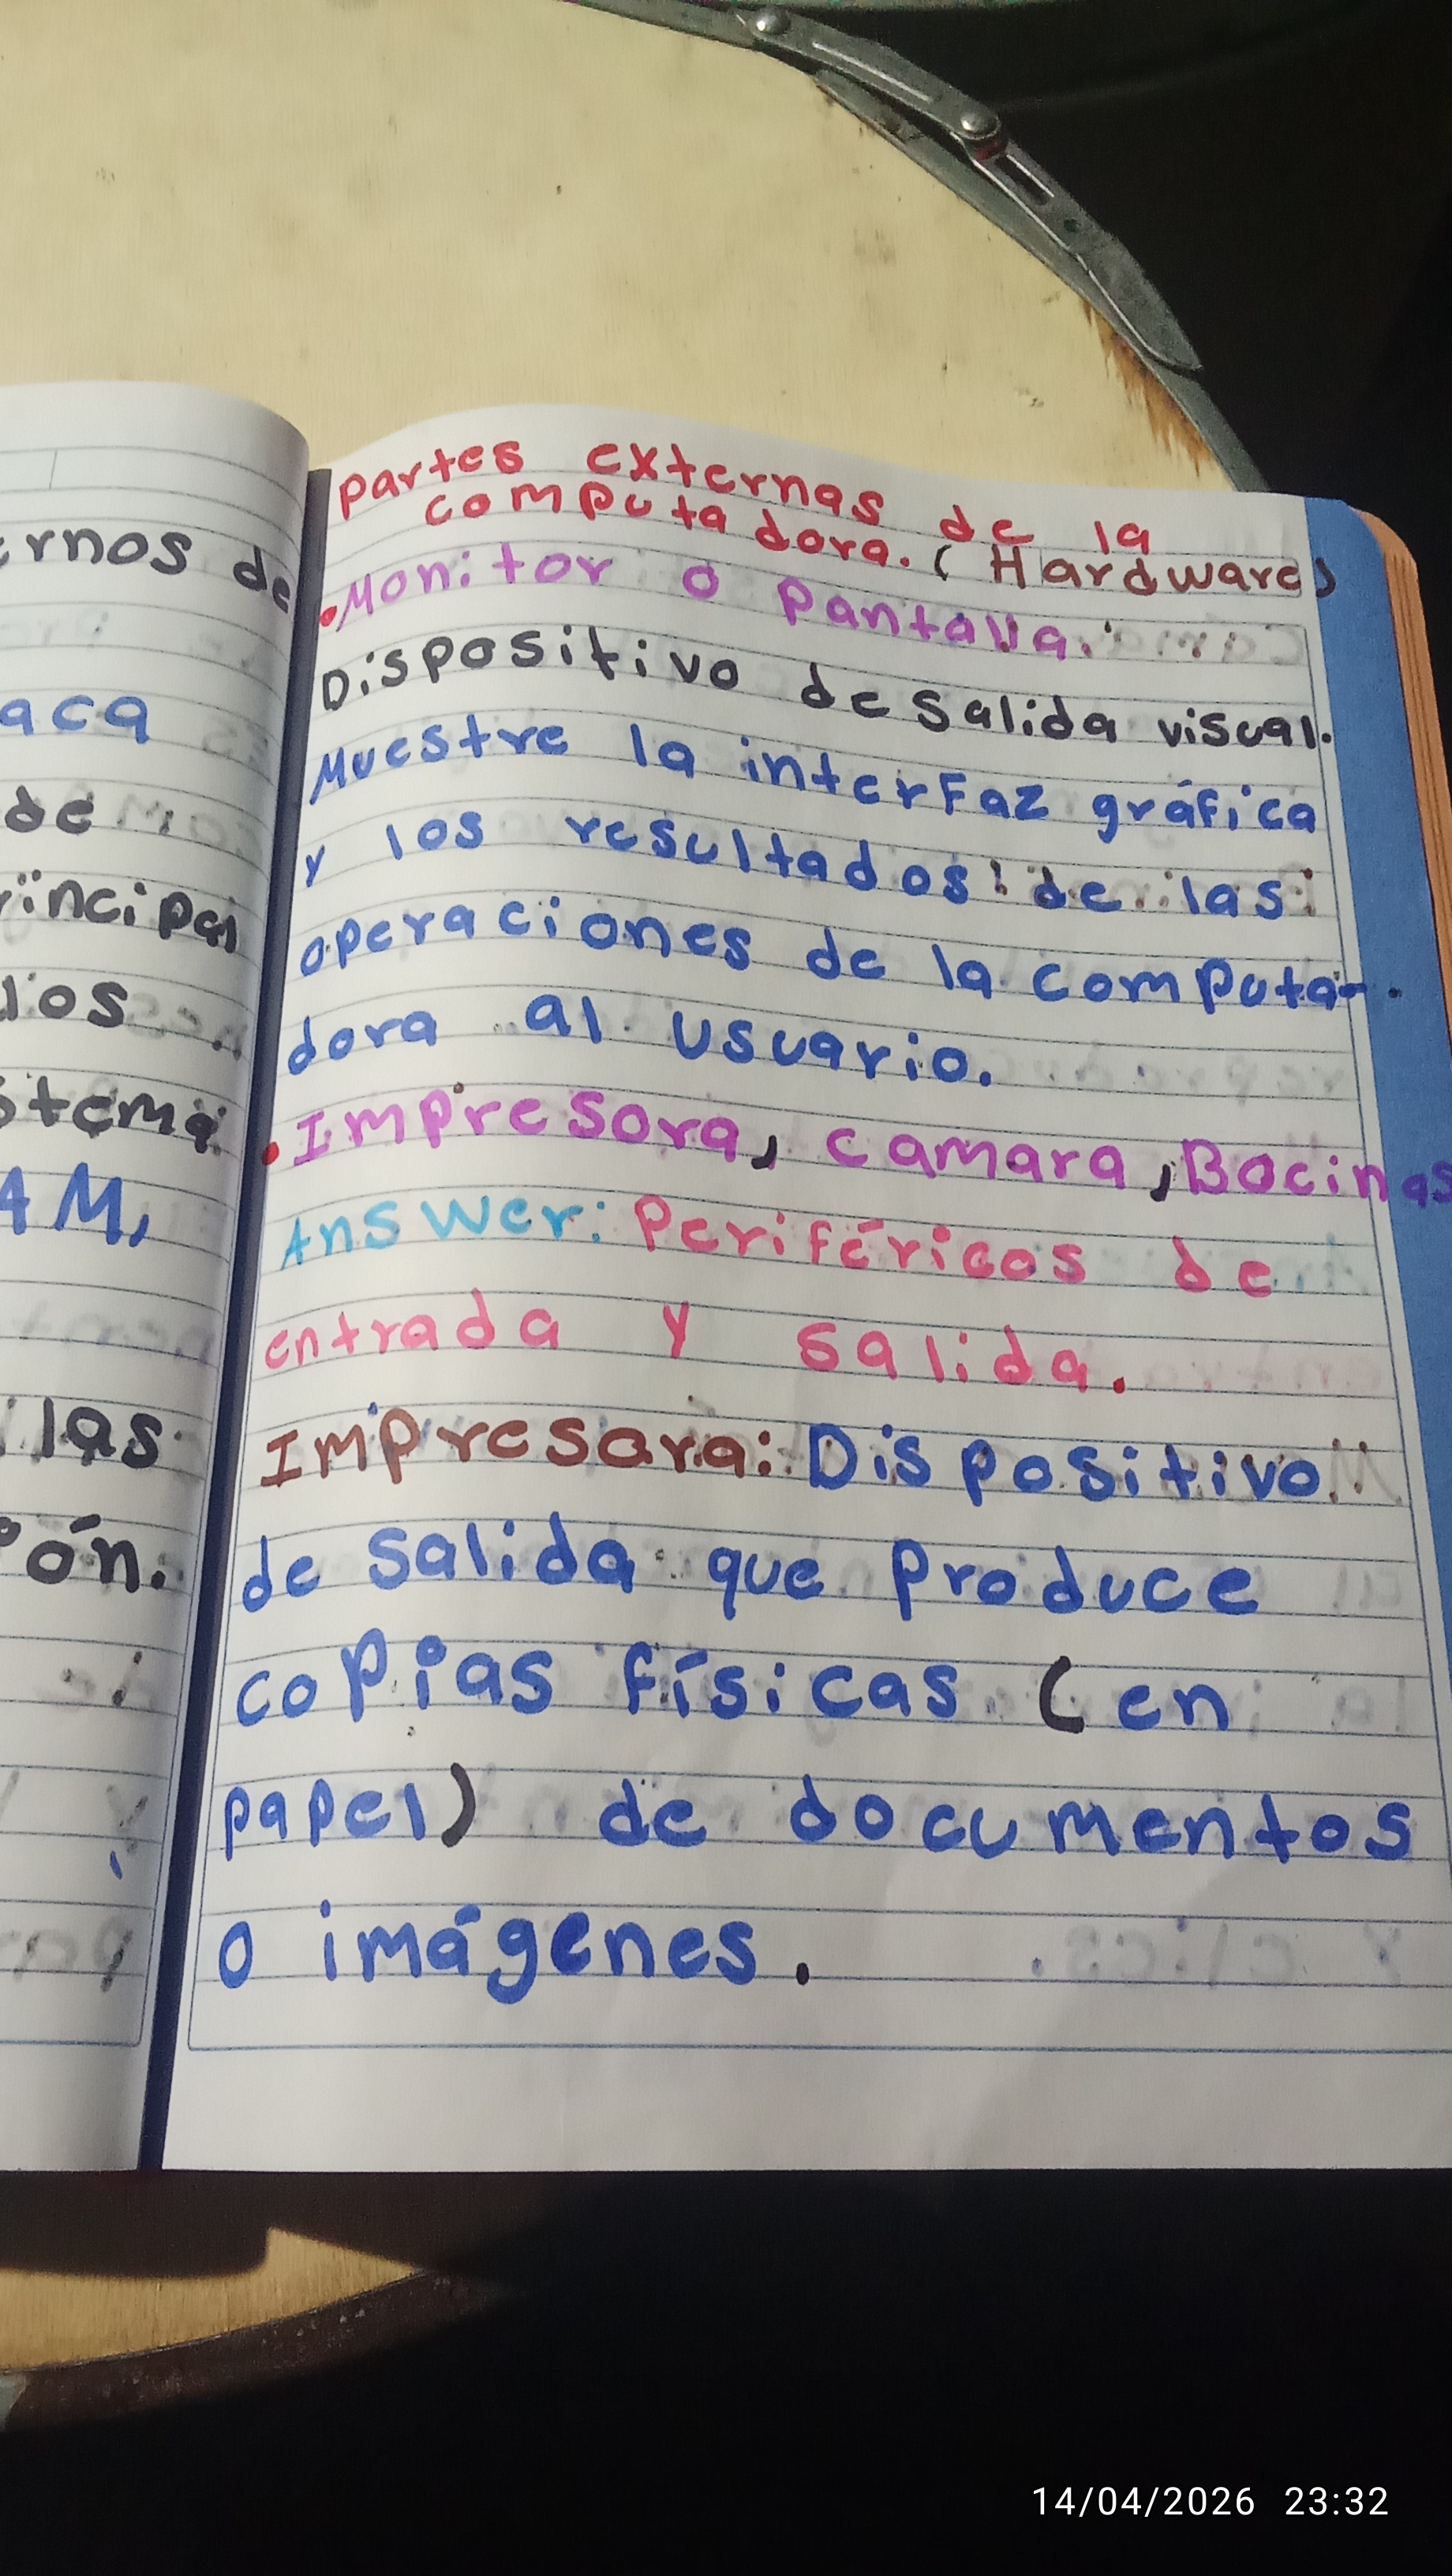 rnos de
aca
de
incipal
los
stema
AM,
las
ón.
partes externas de la
computadora. (Hardware)
• Monitor o pantalla.
Dispositivo de salida visual.
Muestre la interfaz gráfica
y los resultados de las
operaciones de la computa-
dora al usuario.
• Impresora, camara, Bocinas
Answer: Periféricos de
entrada y salida.
Impresara: Dispositivo
de salida que produce
copias físicas (en
papel) de documentos
o imágenes.
14/04/2026 23:32